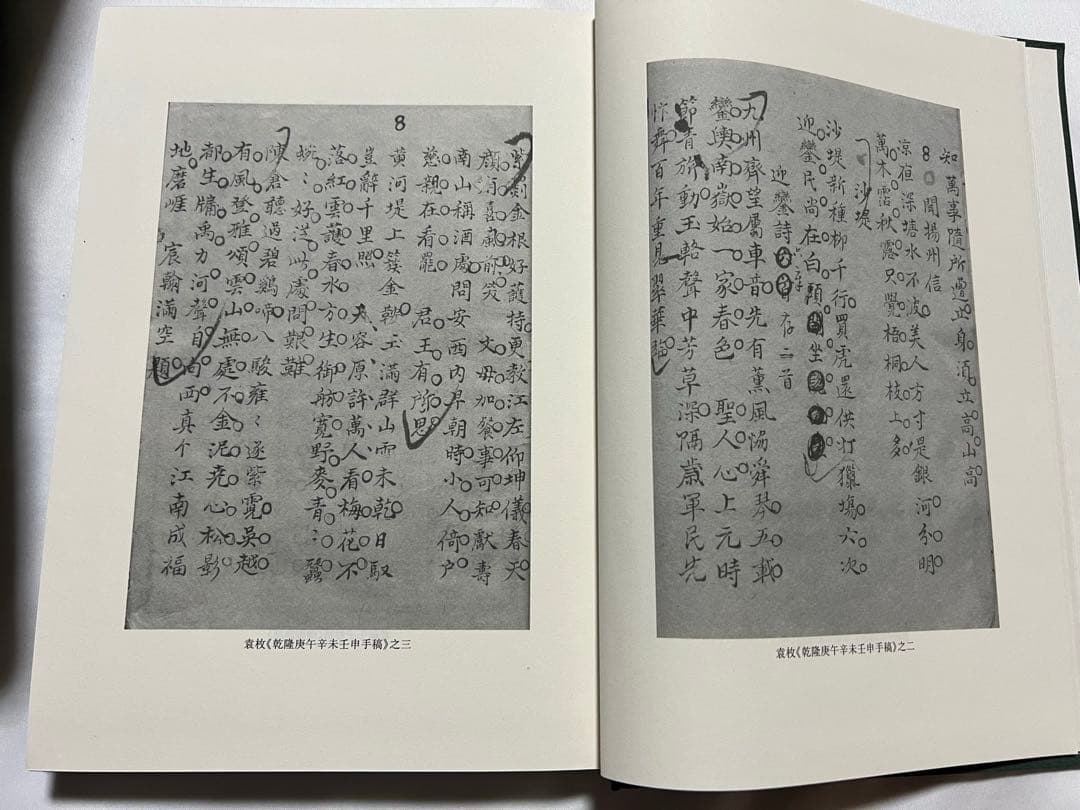 知萬事隋所遭正身須立高山高
8 聞揚州信
涼夜深塘水不波美人方寸是銀河分明
萬木霑秋露只覺梧桐枝上多
沙堤
沙堤新種柳千行買虎還供打獵場六次
迎鑾民尚在白頭 坐
迎鑾詩 存二首
九州齊望屬車音先有薰風協舜琴五載
鑾輿南嶽始一家春色 聖人心上元時
節青旂動玉輅聲中芳草深隔歲軍民先
忭舞百年重見翠華臨
袁枚《乾隆庚午辛未壬申手稿》之二
8
紫 金根好護持更教江左仰坤儀春天
顏有喜風前笑 父母加餐事可知獻壽
南山稱酒處問安西內早朝時小人倚户
慈親在看罷 君王有所思
黃河堤上簇金鞍玉滿群山雪未乾日馭
豈辭千里照 天容原許萬人看梅花不
落紅雲護春水方生御舫寬野麥青〻蠶
婉〻好 此處問艱難
陳倉聽過碧鷄啼八駿雍〻逐紫霓吳越
有風登雅頌雲山無處不金泥堯心松影
都生牖禹力河聲自向西真个江南成福
地磨崖 宸翰滿空題
袁枚《乾隆庚午辛未壬申手稿》之三